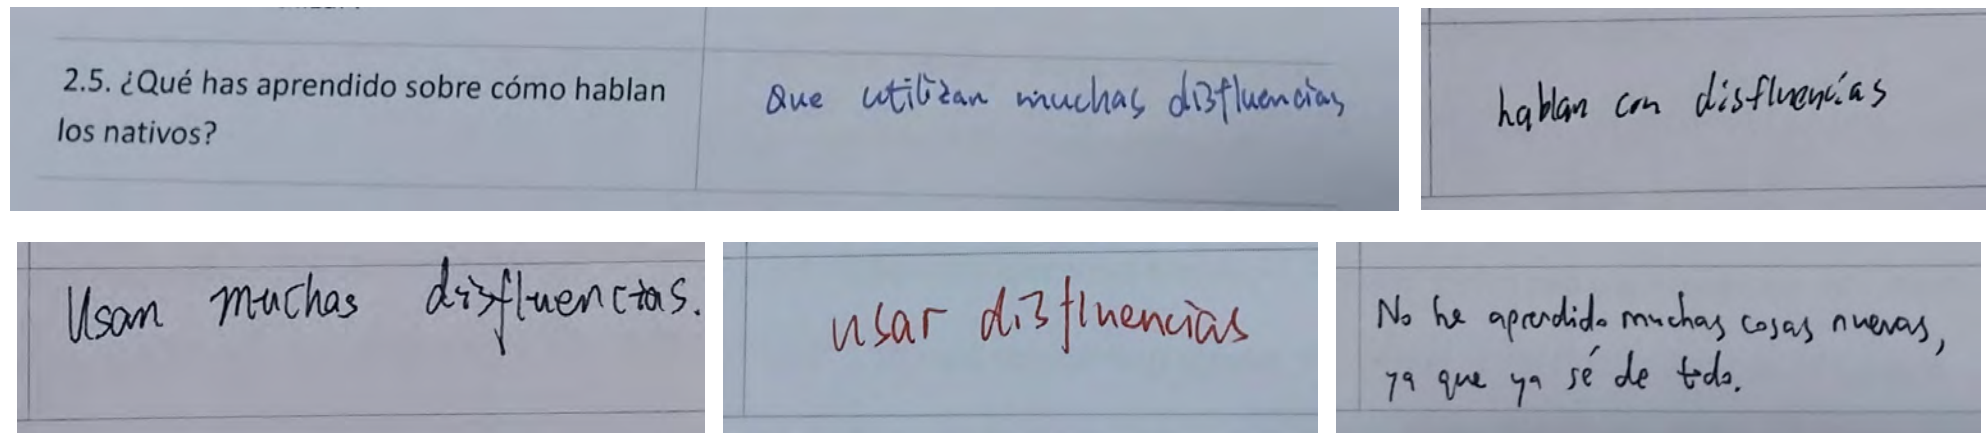 2.5. ¿Qué has aprendido sobre cómo hablan
los nativos?
Que utilizan muchas disfluencias
hablan con disfluencias
Usan muchas disfluencias.
usar disfluencias
No he aprendido muchas cosas nuevas,
ya que ya sé de todo.